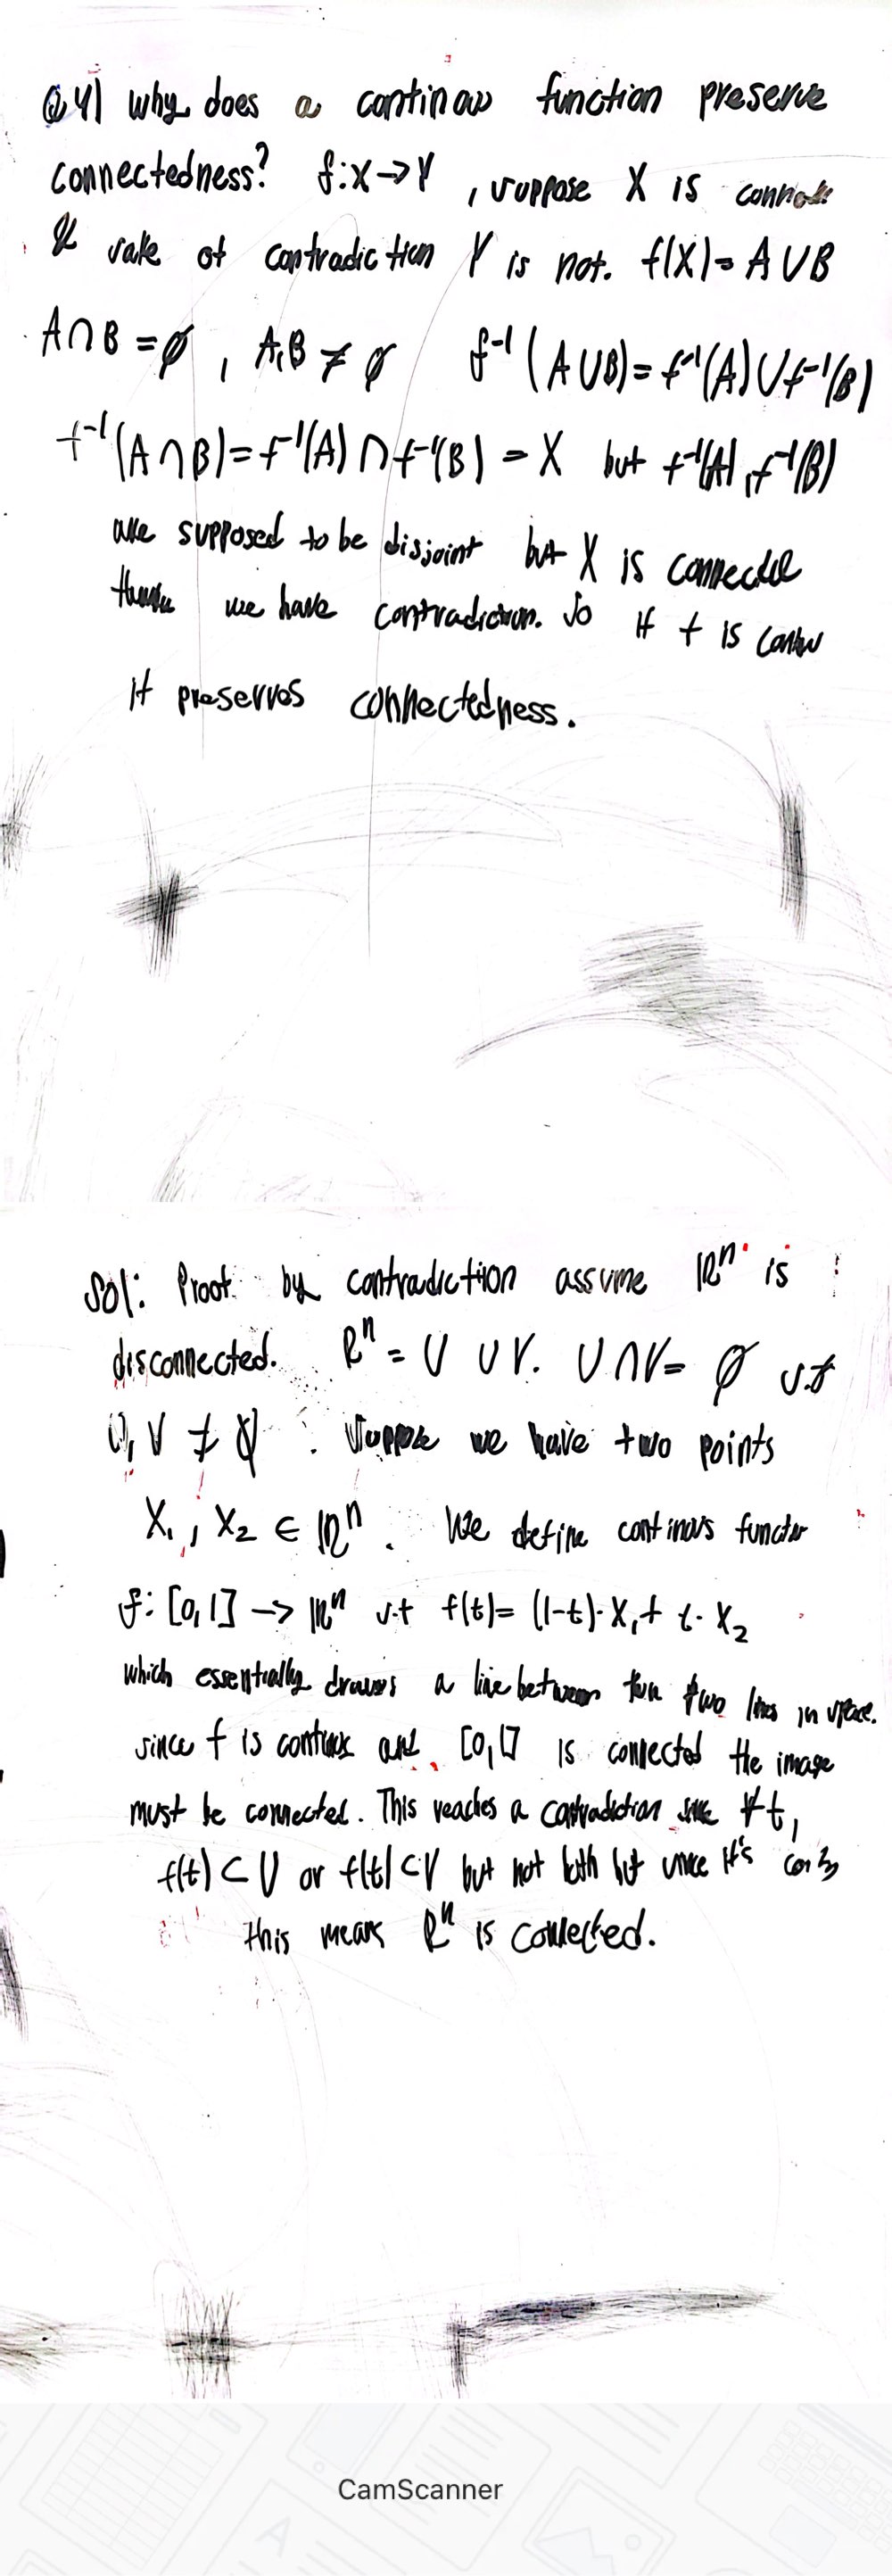 Q4) why does a continous function preserve
connectedness? f:X→Y , suppose X is
& sake of contradiction Y is not. f(X)= A ∪ B
A ∩ B = ∅ , A,B ≠ ∅ f⁻¹(A∪B)= f⁻¹(A)∪f⁻¹(B)
f⁻¹(A∩B)=f⁻¹(A)∩f⁻¹(B) = X but f⁻¹(A),f⁻¹(B)
are supposed to be disjoint but X is connected
we have contradiction. So if f is
it preserves connectedness.
Sol: Proof by contradiction assume ℝⁿ is
disconnected. Rⁿ = U ∪ V. U ∩ V= ∅ s.t
U, V ≠ ∅ . Suppose we have two points
X₁, X₂ ∈ ℝⁿ. We define continous function
f: [0,1] → ℝⁿ s.t f(t)= (1-t)·X₁+ t·X₂
which essentially draws a line between two lines in space.
since f is and [0,1] is connected the image
must be connected. This reaches a contradiction ∀t,
f(t) ⊂ U or f(t) ⊂ V but not both but since it's
this means Rⁿ is connected.
CamScanner